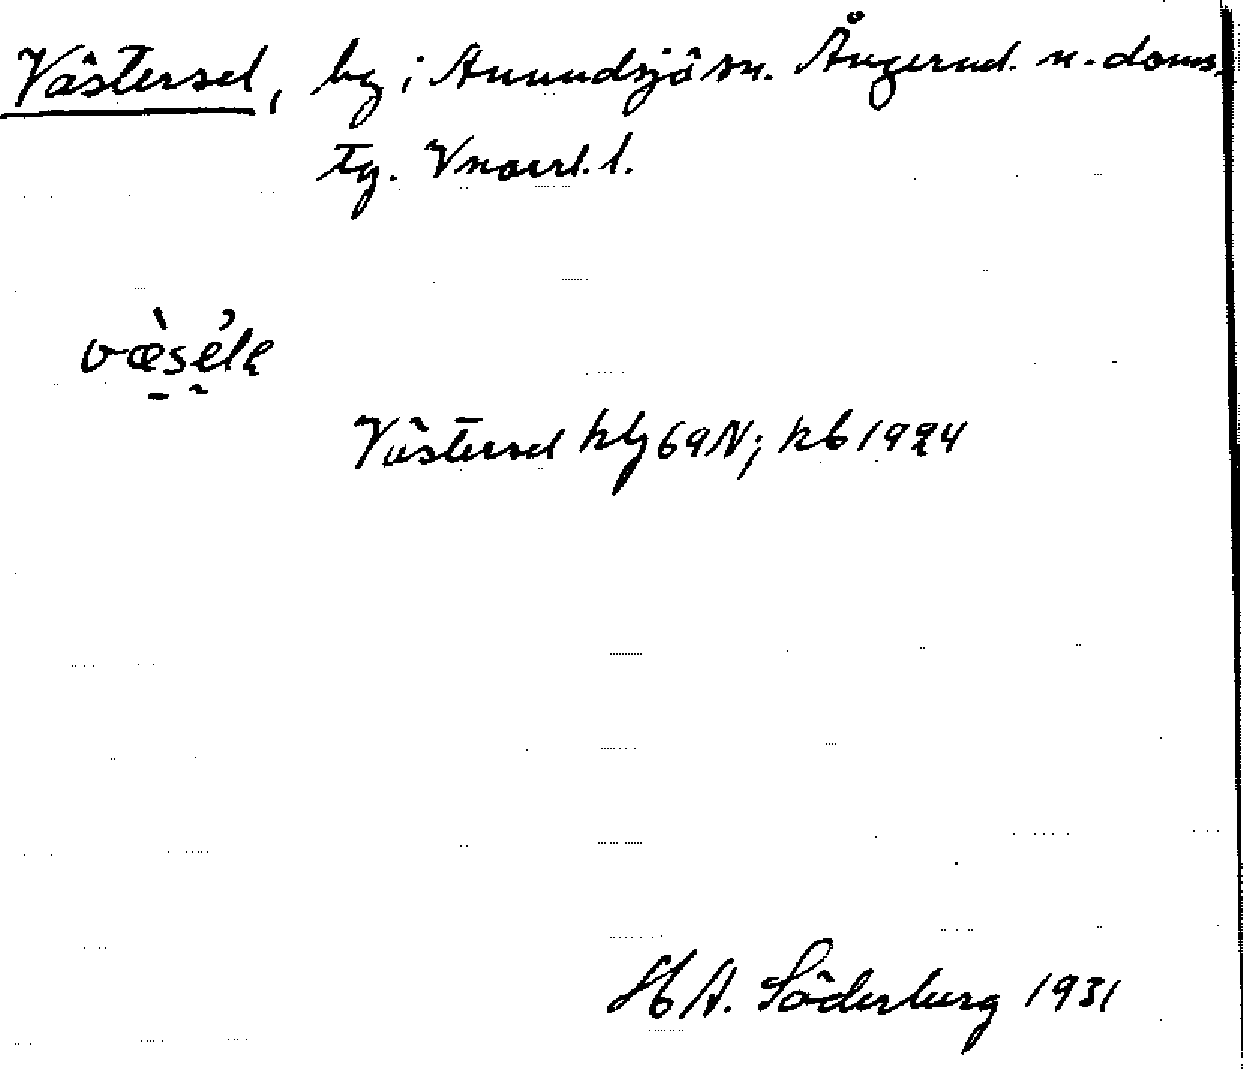 Västersel, by i Anundsjö sn. Ångerml. n. doms.
tg. Vnorrl. l.
væ̀sélɐ
Västersel hbg 69N; kb 1924
H A. Söderberg 1931